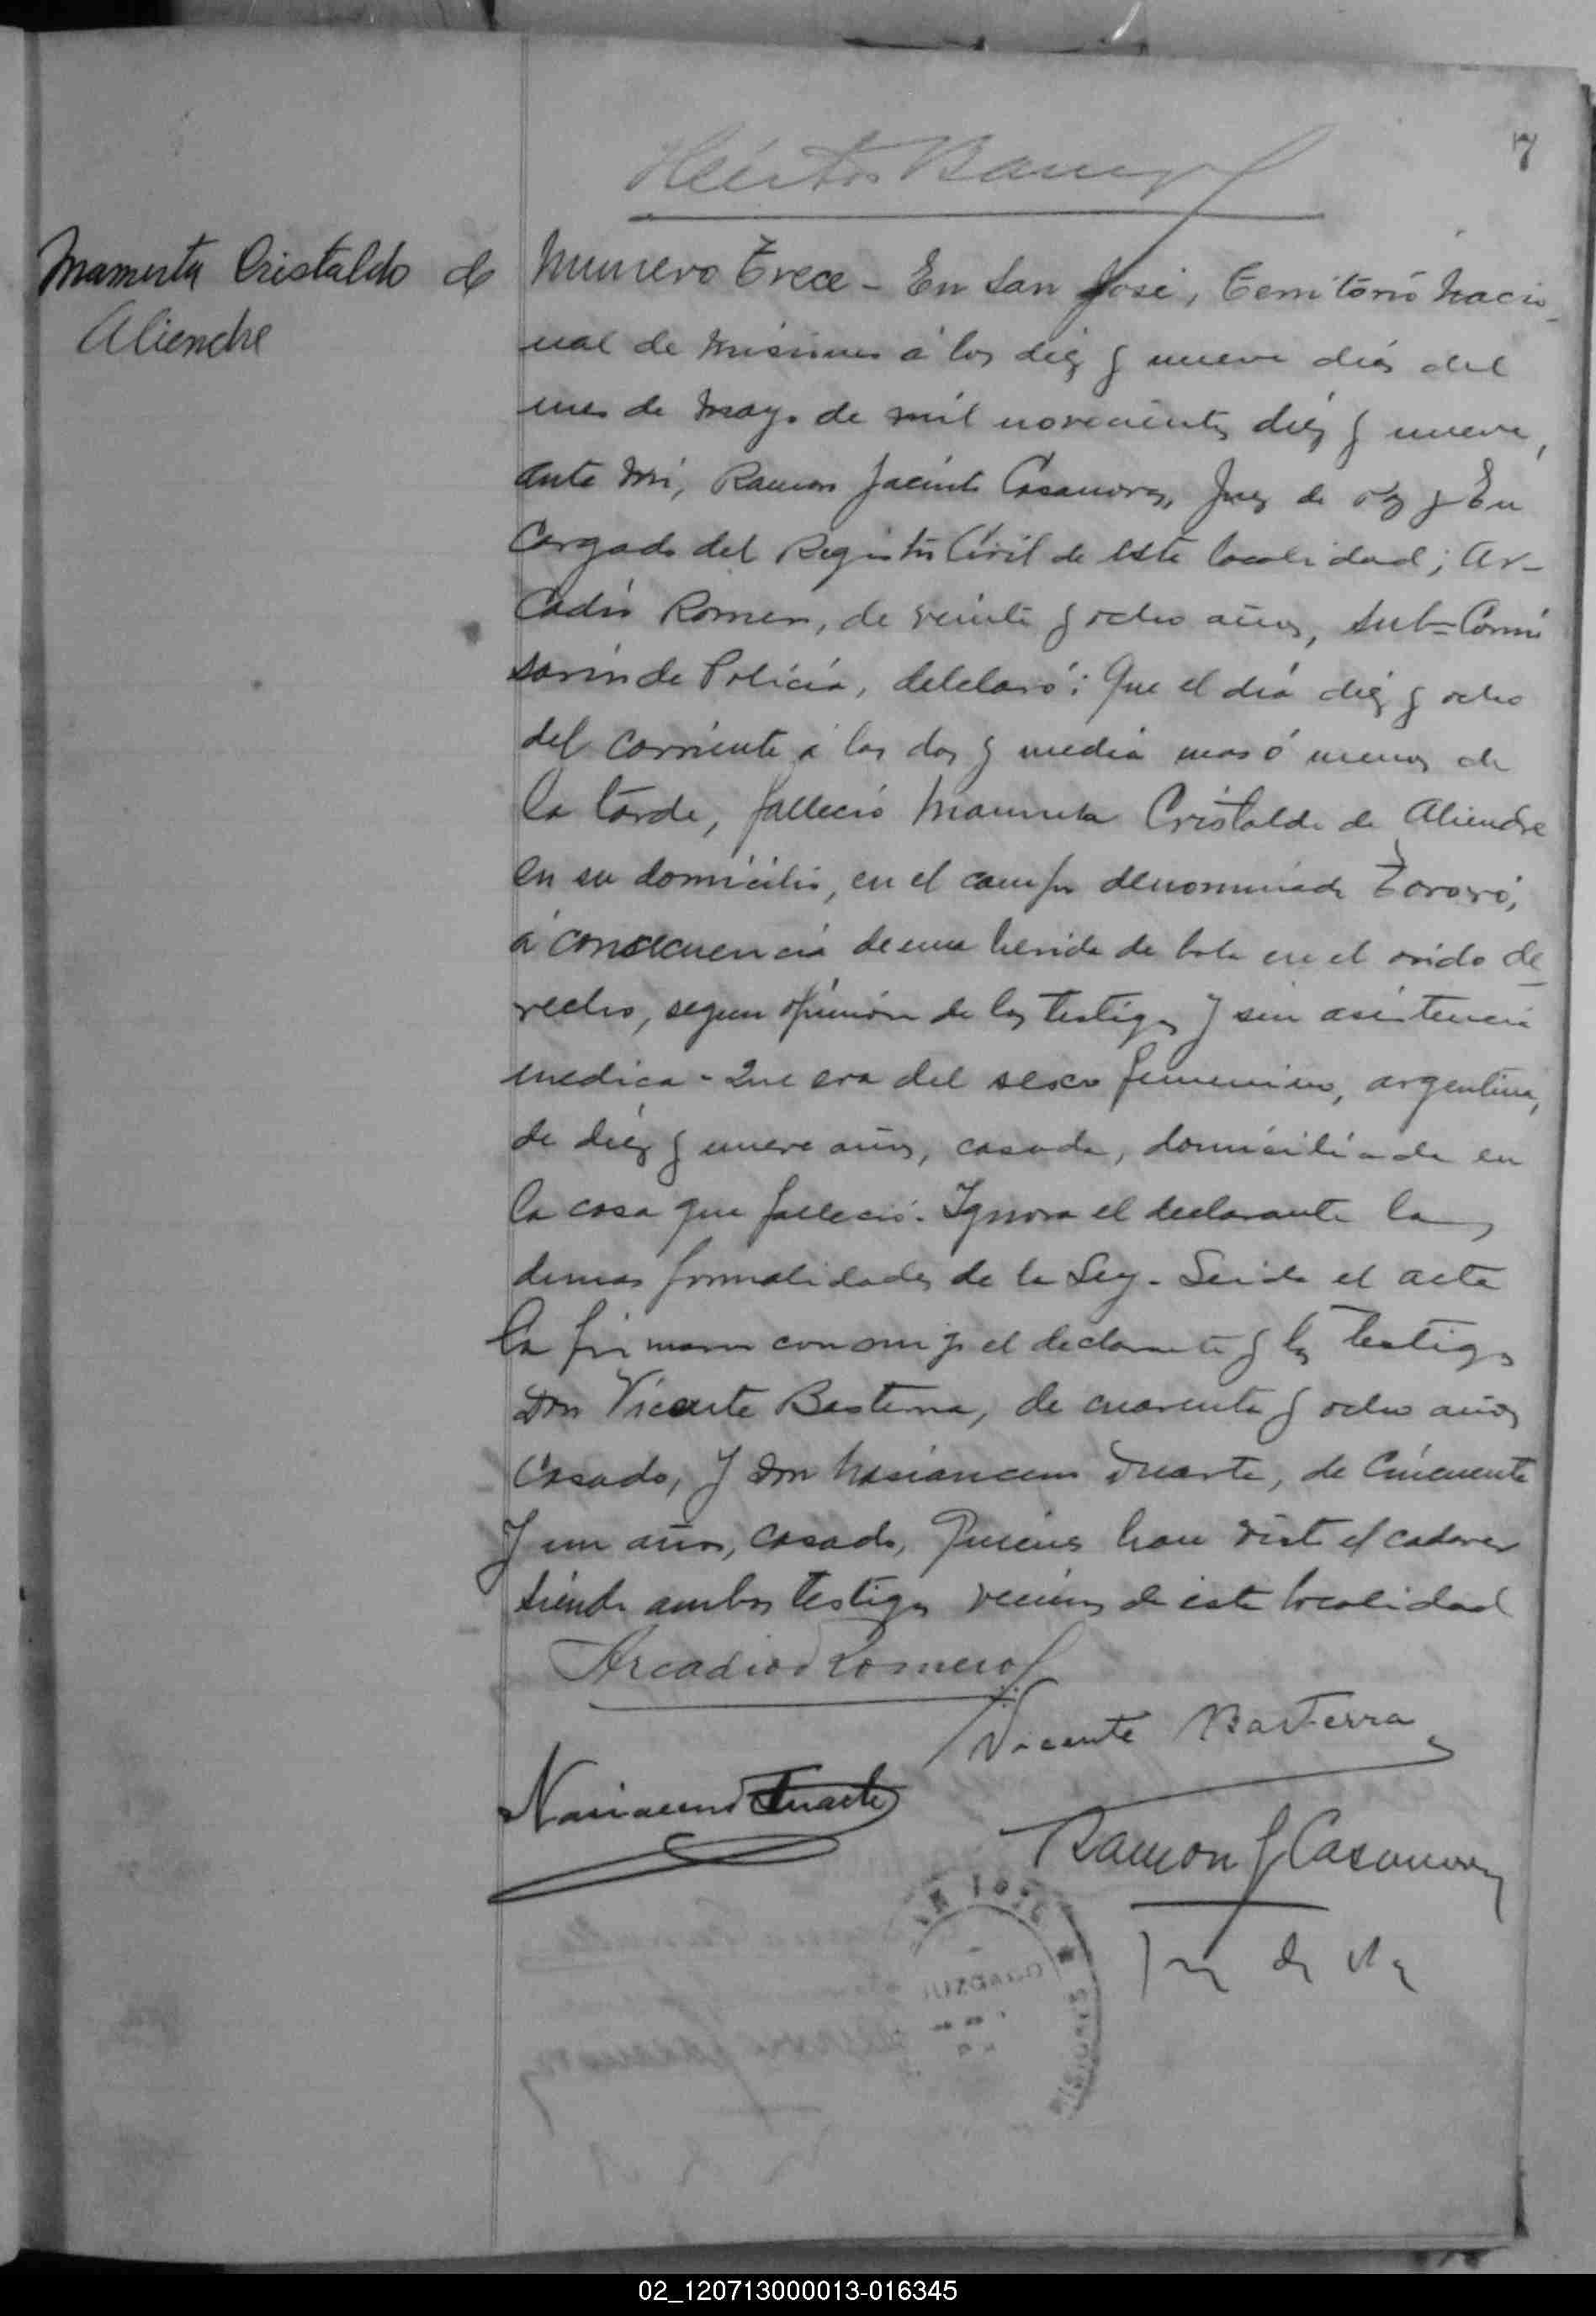 7
Héctor
Mamerta Cristaldo de
Aliendre
Numero Trece - En San José, Territorio Nacio
nal de Misiones á los diez y nueve días del
mes de Mayo de mil novecientos diez y nueve,
ante mi, Ramon Jacinto Casanova, Juez de Paz y En
cargado del Registro Civil de esta localidad; Ar-
cadio Romero, de veinte y ocho años, Sub=Comi
sario de Policía, delclaró: Que el día diez y ocho
del corriente á las dos y media mas ó menos de
la tarde, falleció Mamerta Cristaldo de Aliendre
en su domicilio, en el campo denominado Tororó,
á consecuencia de una herida de bala en el oido de
recho, segun opinión de los testigos y sin asistencia
medica - Que era del sexo femenino, argentina,
de diez y nueve años, casada, domiciliada en
la casa que falleció. Ignora el declarante las
demas formalidades de la Ley. Leida el acta
la firmaron conmigo el declarante y los testigos
Don Vicente Basterra, de cuarenta y ocho años
casado, y Don Nasianceno Duarte, de cincuenta
y un años, casado, quienes han visto el cadaver
siendo ambos testigos vecinos de esta localidad
Arcadio Romero
Vicente Basterra
Nasianceno Duarte
Ramon J Casanova
Juez de Paz
MISIONES
02_120713000013-016345